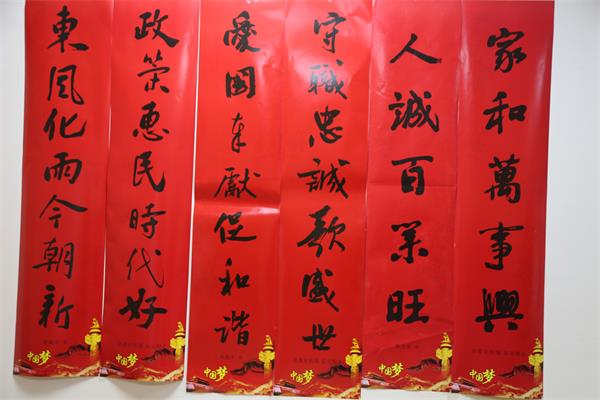 家和萬事興
中国梦
人誠百業旺
中国梦
守職忠誠歌盛世
中国梦
愛國奉獻促和谐
中国梦
政策惠民時代好
中国梦
東風化雨今朝新
中国梦